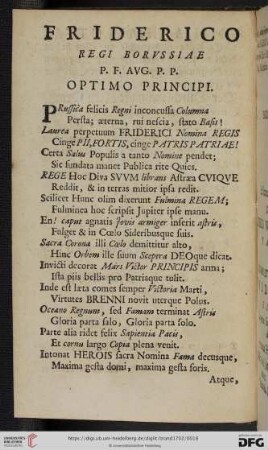 FRIDERICO
REGI BORVSSIAE
P. F. AVG. P. P.
OPTIMO PRINCIPI.
PRussica felicis Regni inconcussa Columna
Persta; æterna, rui nescia, stato Basis!
Laurea perpetuum FRIDERICI Nomina REGIS
Cinge PII, FORTIS, cinge PATRIS PATRIAE!
Certa Salus Populis a tanto Nomine pendet;
Sic fundata manet Publica rite Quies.
REGE Hoc Diva SVVM librans Astræa CVIQVE
Reddit, & in terras mitior ipsa redit.
Scilicet Hunc olim dixerunt Fulmina REGEM;
Fulminea hoc scripsit Jupiter ipse manu.
En! caput agnatis Jovis armiger inserit astris,
Fulget & in Cœlo Sideribusque suis.
Sacra Corona illi Cœlo demittitur alto,
Hunc Orbem ille suum Sceptra DEOque dicat.
Invicti decorat Mars Victor PRINCIPIS arma;
Ista piis bellis pro Patriaque tulit.
Inde est læta comes semper Victoria Marti,
Virtutes BRENNI novit uterque Polus.
Oceano Regnum, sed Famam terminat Astris
Gloria parta salo, Gloria parta solo.
Parte alia ridet felix Sapientia Pacis,
Et cornu largo Copia plena venit.
Intonat HEROIS sacra Nomina Fama decusque,
Maxima gesta domi, maxima gesta foris.
Atque,
http://digi.ub.uni-heidelberg.de/diglit/
© Universitätsbibliothek Heidelberg